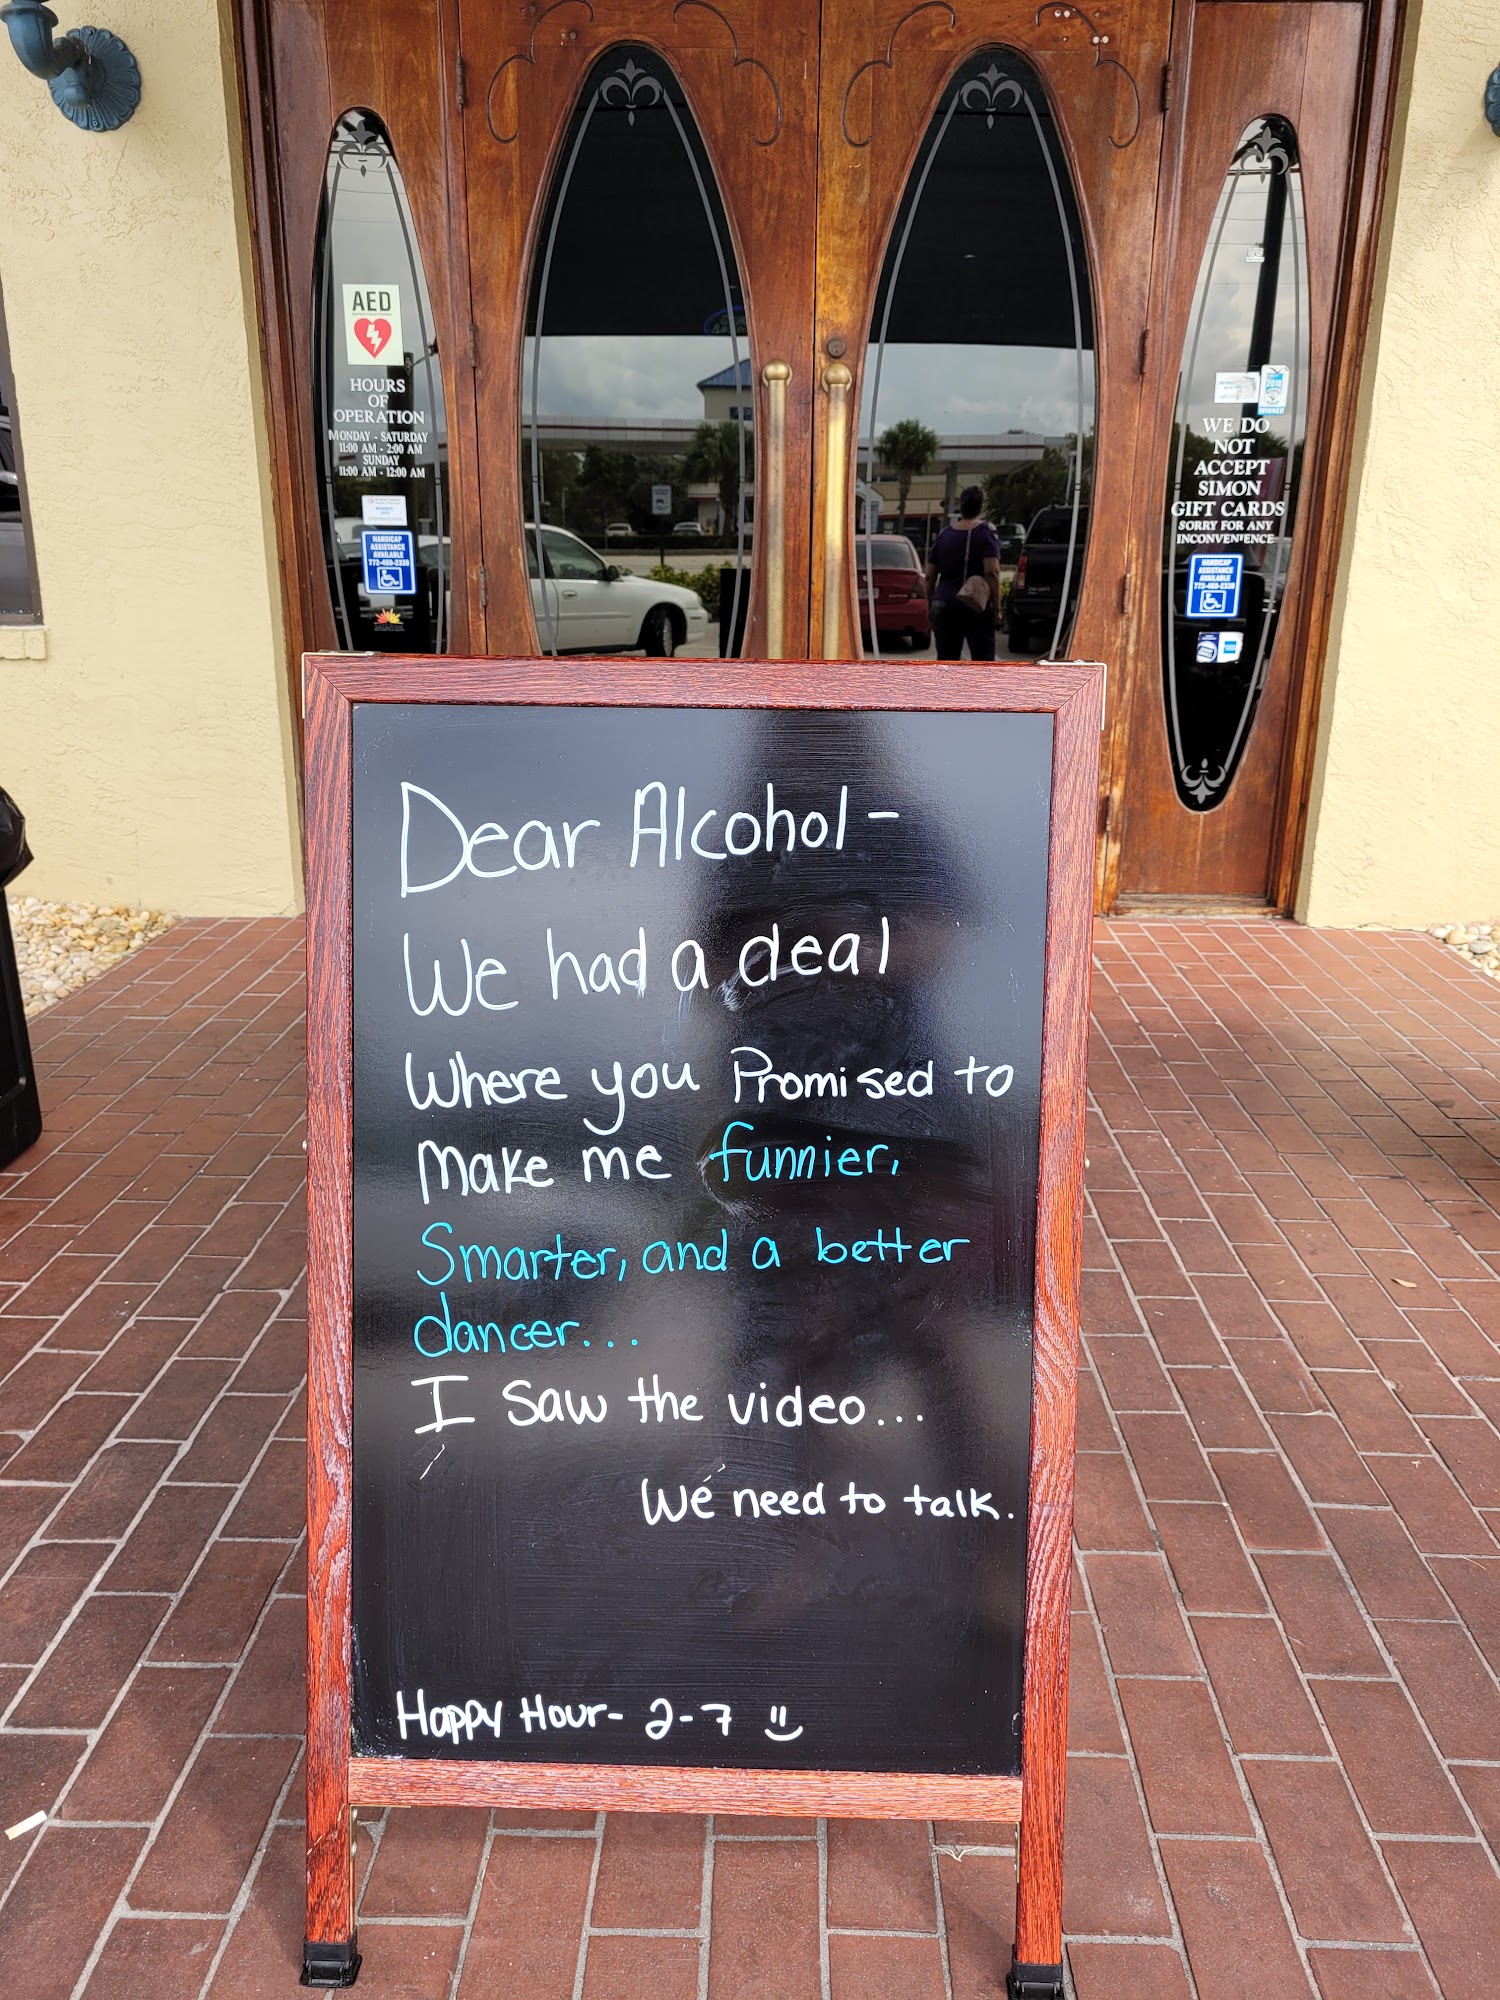 AED
HOURS
OF
OPERATION
MONDAY - SATURDAY
11:00 AM - 2:00 AM
SUNDAY
11:00 AM - 12:00 AM
HANDICAP
ASSISTANCE
AVAILABLE
772-466-2330
2018
WINNER
WE DO
NOT
ACCEPT
SIMON
GIFT CARDS
SORRY FOR ANY
INCONVENIENCE
HANDICAP
ASSISTANCE
AVAILABLE
772-466-2330
Dear Alcohol -
We had a deal
Where you Promised to
Make me funnier,
Smarter, and a better
dancer...
I saw the video...
We need to talk.
Happy Hour - 2-7